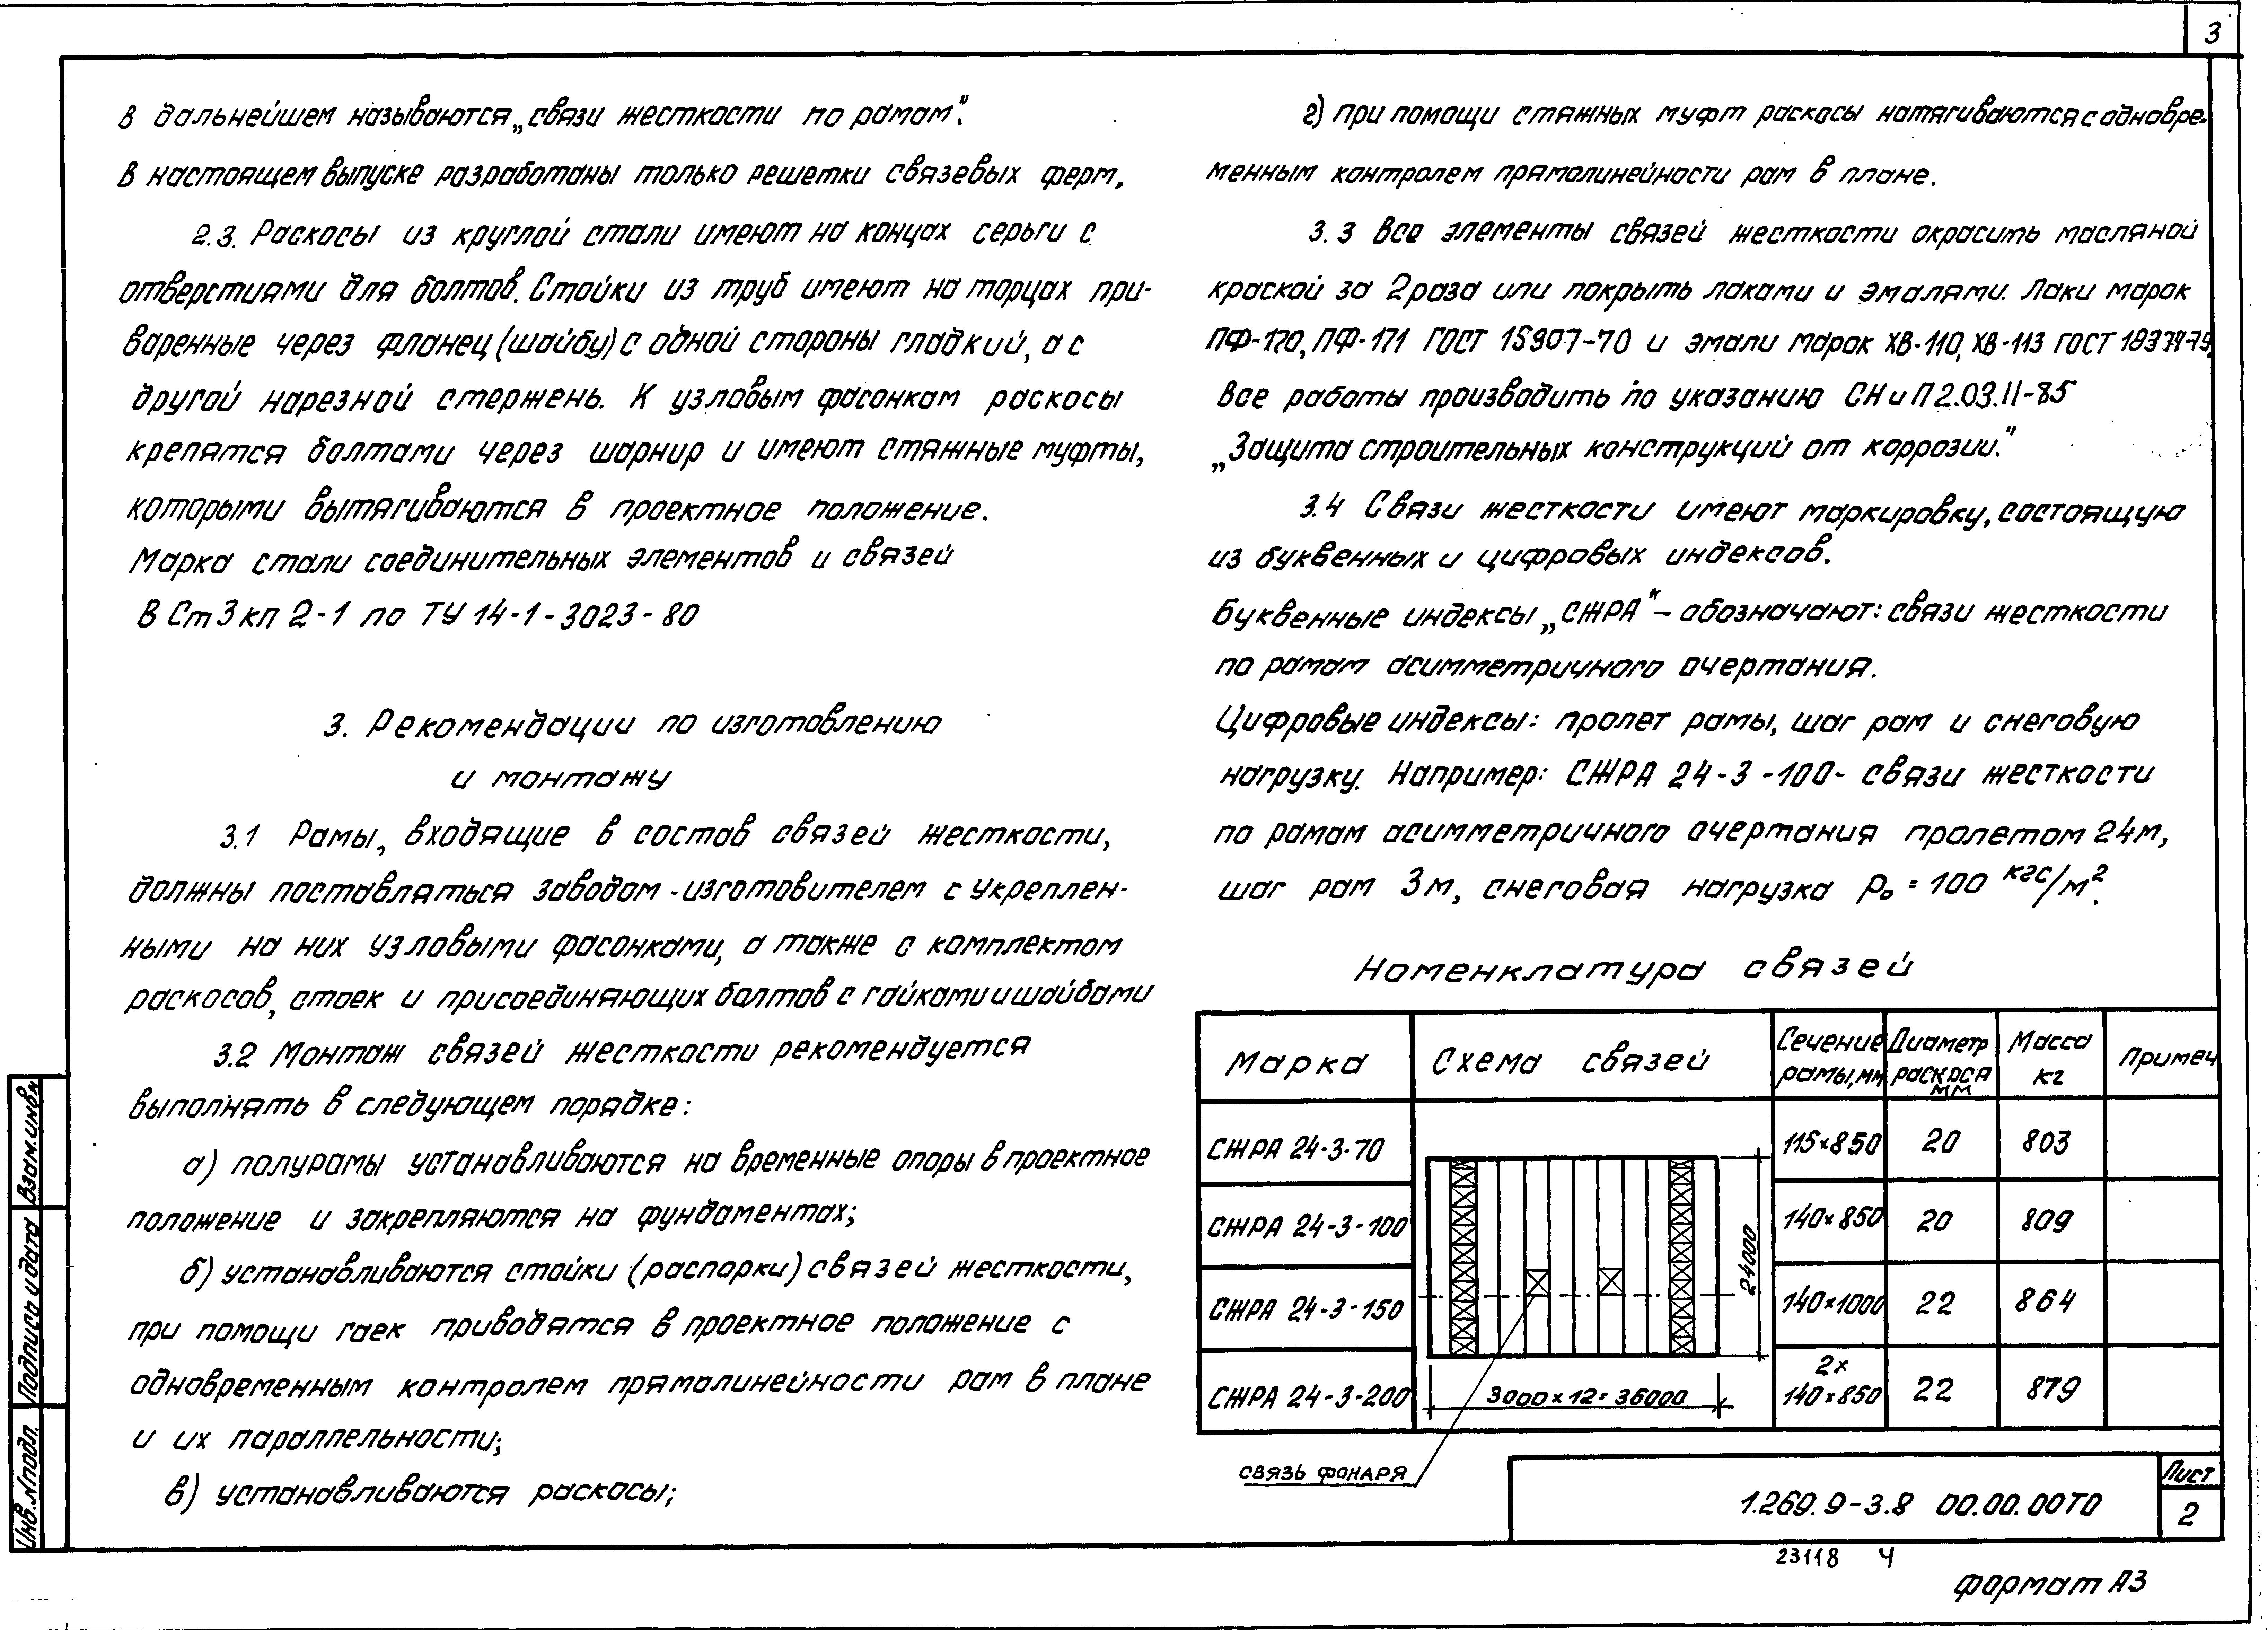 3
в дальнейшем называются „связи жесткости по рамам".
В настоящем выпуске разработаны только решетки связевых ферм.
2.3. Раскосы из круглой стали имеют на концах серьги с
отверстиями для болтов. Стойки из труб имеют на торцах при-
варенные через фланец (шайбу) с одной стороны гладкий, а с
другой нарезной стержень. К узловым фасонкам раскосы
крепятся болтами через шарнир и имеют стяжные муфты,
которыми вытягиваются в проектное положение.
Марка стали соединительных элементов и связей
В Ст 3 кп 2-1 по ТУ 14-1-3023-80
3. Рекомендации по изготовлению
и монтажу
3.1 Рамы, входящие в состав связей жесткости,
должны поставляться заводом-изготовителем с укреплен-
ными на них узловыми фасонками, а также с комплектом
раскосов, стоек и присоединяющих болтов с гайками и шайбами
3.2 Монтаж связей жесткости рекомендуется
выполнять в следующем порядке:
а) полурамы устанавливаются на временные опоры в проектное
положение и закрепляются на фундаментах;
б) устанавливаются стойки (распорки) связей жесткости,
при помощи гаек приводятся в проектное положение с
одновременным контролем прямолинейности рам в плане
и их параллельности;
в) устанавливаются раскосы;
г) при помощи стяжных муфт раскосы натягиваются с одновре-
менным контролем прямолинейности рам в плане.
3.3 Все элементы связей жесткости окрасить масляной
краской за 2 раза или покрыть лаками и эмалями. Лаки марок
ПФ-170, ПФ-171 ГОСТ 15907-70 и эмали марок ХВ-110, ХВ-113 ГОСТ 18374-79.
Все работы производить по указанию СНиП 2.03.11-85
„Защита строительных конструкций от коррозии."
3.4 Связи жесткости имеют маркировку, состоящую
из буквенных и цифровых индексов.
Буквенные индексы „СЖРА" - обозначают: связи жесткости
по рамам асимметричного очертания.
Цифровые индексы: пролет рамы, шаг рам и снеговую
нагрузку. Например: СЖРА 24-3-100- связи жесткости
по рамам асимметричного очертания пролетом 24м,
шаг рам 3м, снеговая нагрузка Р₀ = 100 кгс/м².
Номенклатура связей
Марка Схема связей Сечение рамы, мм Диаметр раскоса мм Масса кг Примеч
СЖРА 24-3-70 115×850 20 803
СЖРА 24-3-100 140×850 20 809
СЖРА 24-3-150 140×1000 22 864
СЖРА 24-3-200 2× 140×850 22 879
24000
3000×12=36000
связь фонаря
1.269.9-3.8 00.00.00ТО
Лист
2
23118 4
Формат А3
Инв.№подл. Подпись и дата Взам.инв.№